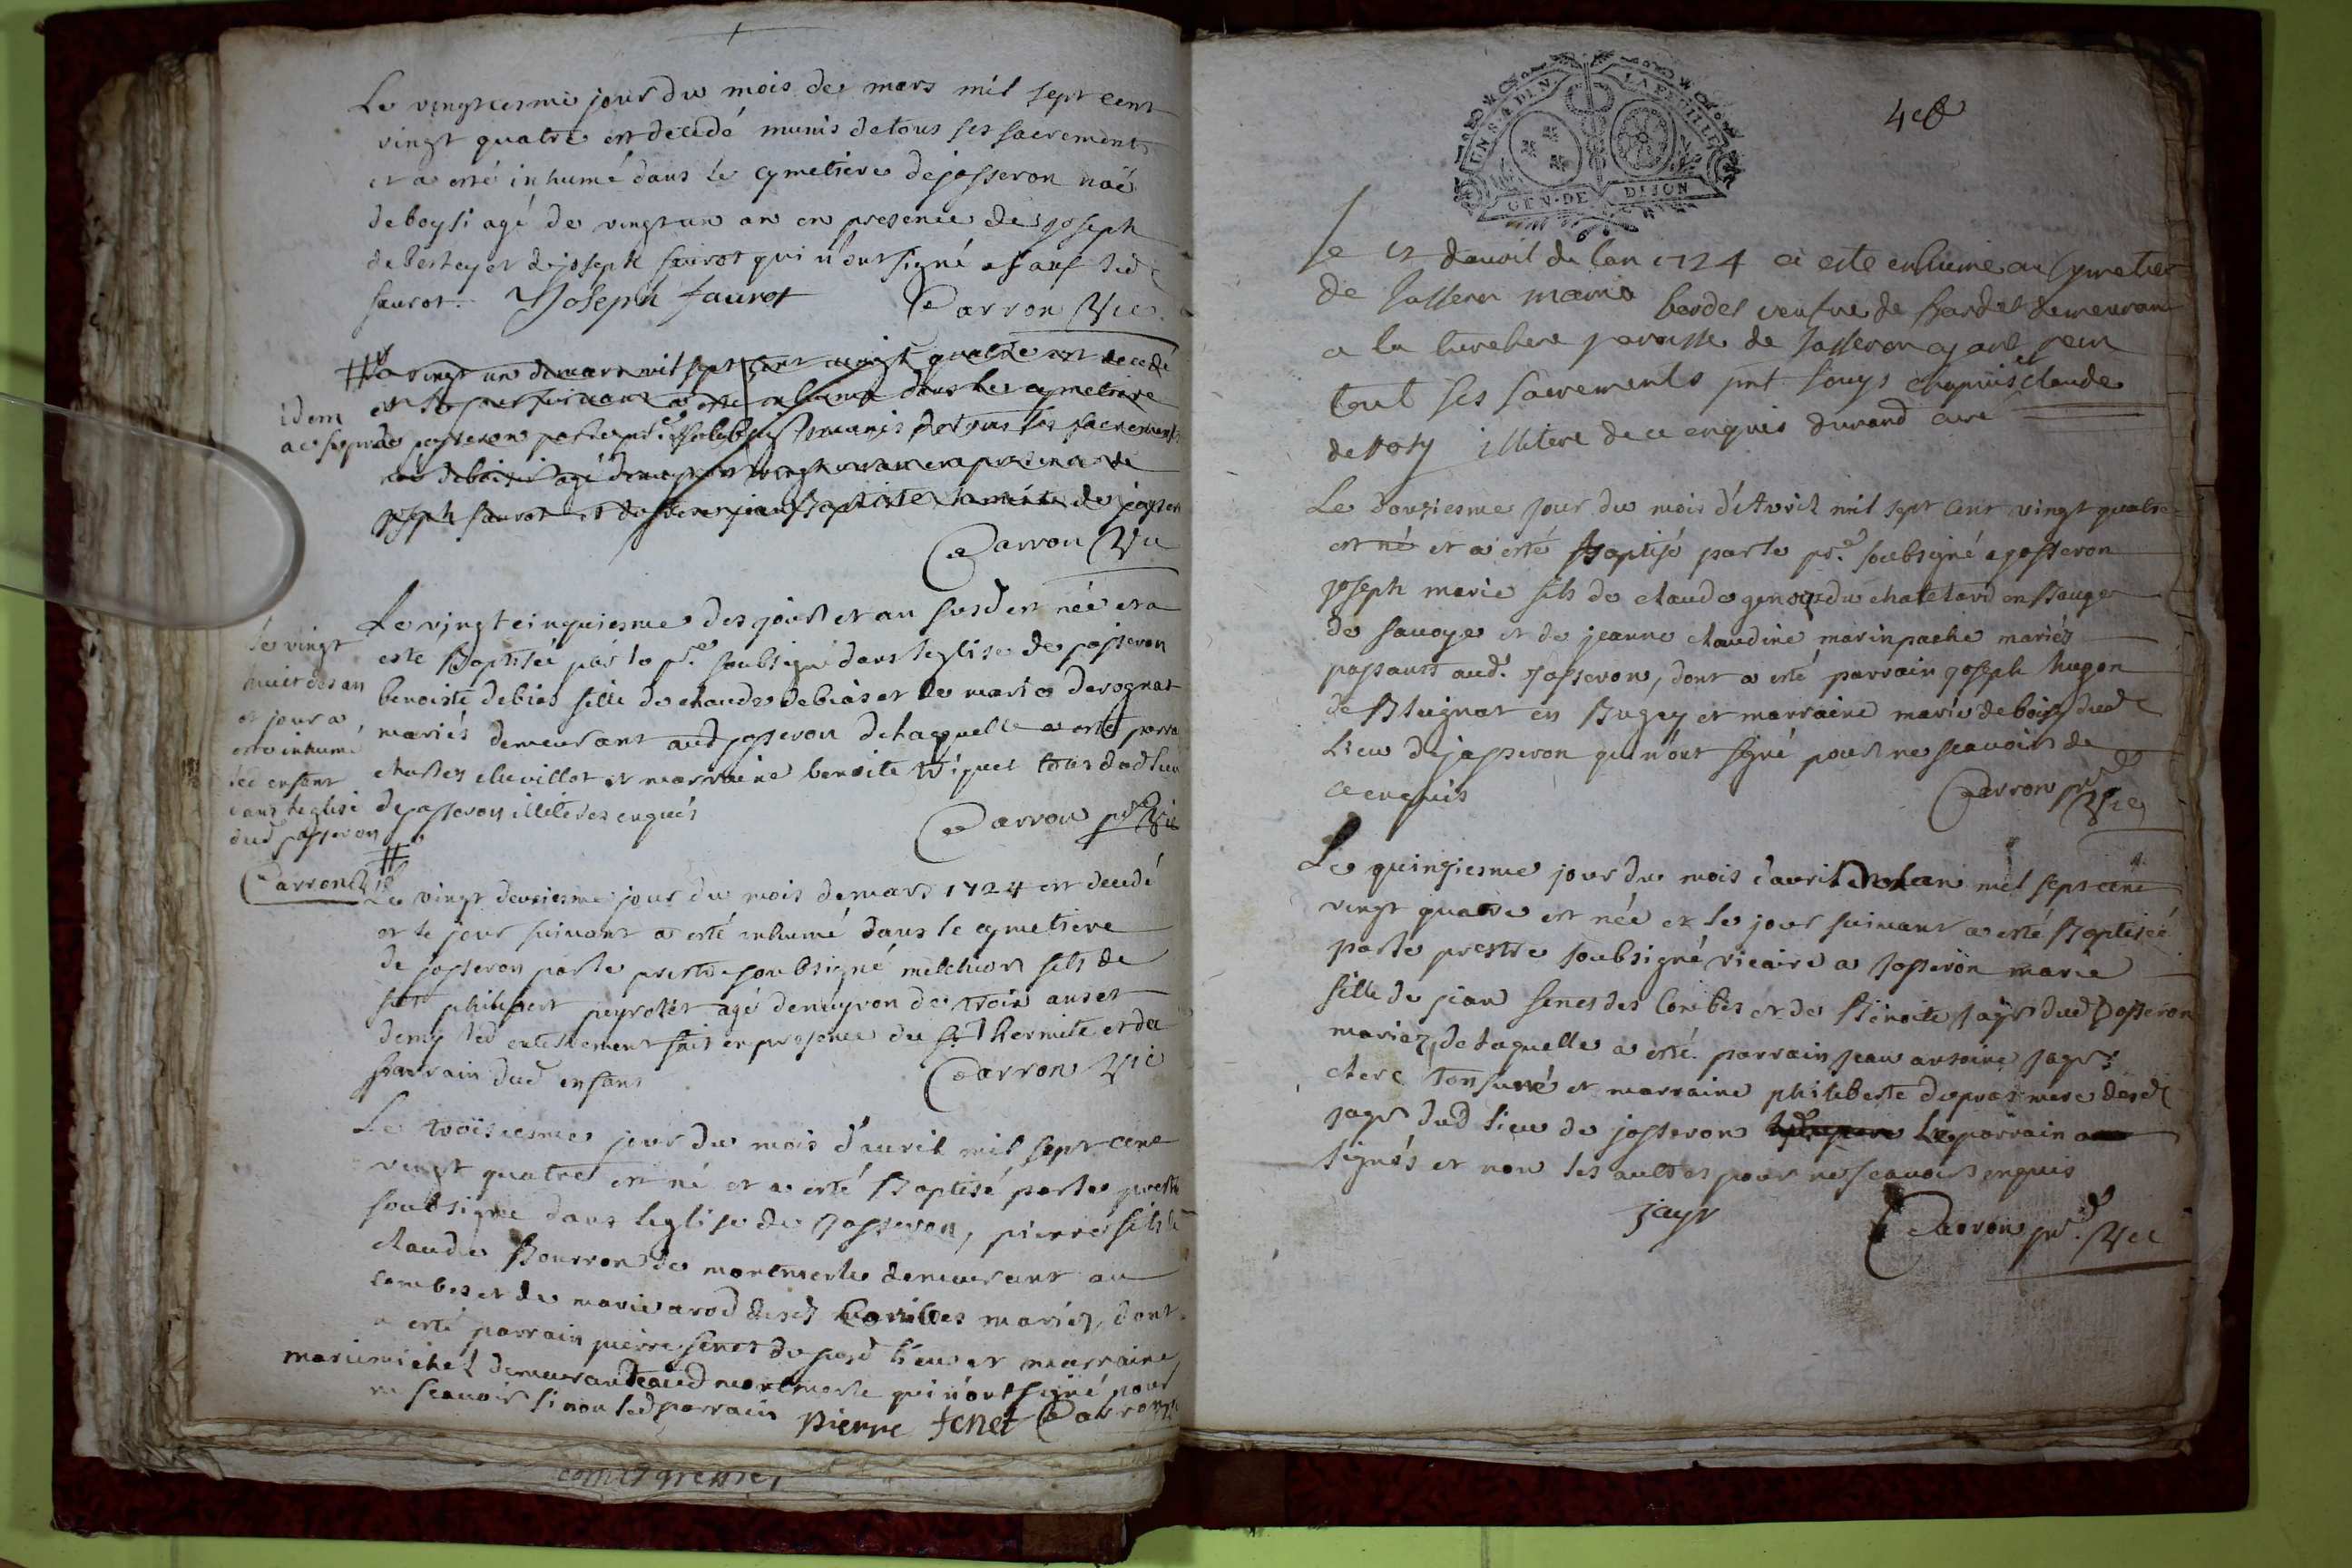 Le vingtiesme jour du mois de mars mil sept cent
vingt quatre est decedé munis de tous ses sacrements
et a esté inhumé dans le cymetiere de jasseron noë
deboysi agé de vingt un an en presence de joseph
de et de joseph faurot qui n'ont signé sauf led
faurot. Joseph faurot Carron Vic.
vingt un de mars mil sept cent vingt quatre est decedé
et le jour suivant a esté inhumé dans le cymetiere
idem
de jasseron par le pr. soubsigné munis de tous les sacrements
noë deboisi agé vingt un an en presence de
joseph faurot et de jean Baptiste de jasseron
Carron Vic
Le vingt cinquiesme des jour et an susd est née et a
esté Baptisée par le pre. soubsigné dans l'eglise de jasseron
benoiste debias fille de claude debias et de marie derognat
mariés demeurant aud jasseron de laquelle a esté parra
charles chevillot et marraine benoite tous dud lieu
de jasseron illiteres enquis
Carron pr Vic
le vingt
huit des an
et jour a
esté inhumé
led enfant
dans l'eglise
dud jasseron
Carron Vic
Le vingt deuxiesme jour du mois de mars 1724 est decedé
et le jour suivant a esté inhumé dans le cymetiere
de jasseron par le prestre soubsigné melchior fils de
fut philibert peyrolet agé denviron de trois ans et
demy led enterrement fait en presence du sr Lhermite et du
parrain dud enfant Carron Vic
Le troisiesme jour du mois d'auril mil sept cent
vingt quatre est né et a esté Baptisé par le prestre
soubsigné dans leglise de Jasseron, pierre fils de
claude Bourron de montmerle demeurant au
combes et de marie arod desd Combes mariez, dont
a esté parrain pierre fenet du susd lieu et marraine
marie michel demeurante aud montmerle qui n'ont signé pour
ne scauoir sinon led parrain Pierre fenet Carron Vic
UN S. 4 DEN. LA FEUILLE
GEN. DE DIJON
Le 12 dauril de lan 1724 a esté enhumé au Cymetier
de Jasseron marie bardet veufve de bardet demeurant
a la parroisse de Jasseron ayant receu
tout ses sacrements pnt. Chapuis et claude
illitere de ce enquis durand curé
Le douziesme jour du mois d'Auril mil sept cent vingt quatre
est né et a esté Baptisé par le pre. soubsigné a jasseron
joseph marie fils de claude du chatelard en Bauge
de sauoye et de jeanne claudine marinpache mariés
passants aud. Jasseron, dont a esté parrain joseph hugon
de en Bugey et marraine marie deboisy dud
Lieu de jasseron qui n'ont signé pour ne scauoir de
ce enquis Carron pre Vic
Le quinziesme jour du mois d'auril de lan mil sept cent
vingt quatre est née et le jour suivant a esté Baptisée
par le prestre soubsigné vicaire a Jasseron marie
fille de jean fenet des Combes et de Benoite Jayr dud Jasseron
mariez, de laquelle a esté parrain jean antoine jayr
clerc tonsuré et marraine philiberte dupras mere dud
jayr dud lieu de jasseron le parrain
signés et non les aultres pour ne scauoir enquis
jayr Carron pre. Vic